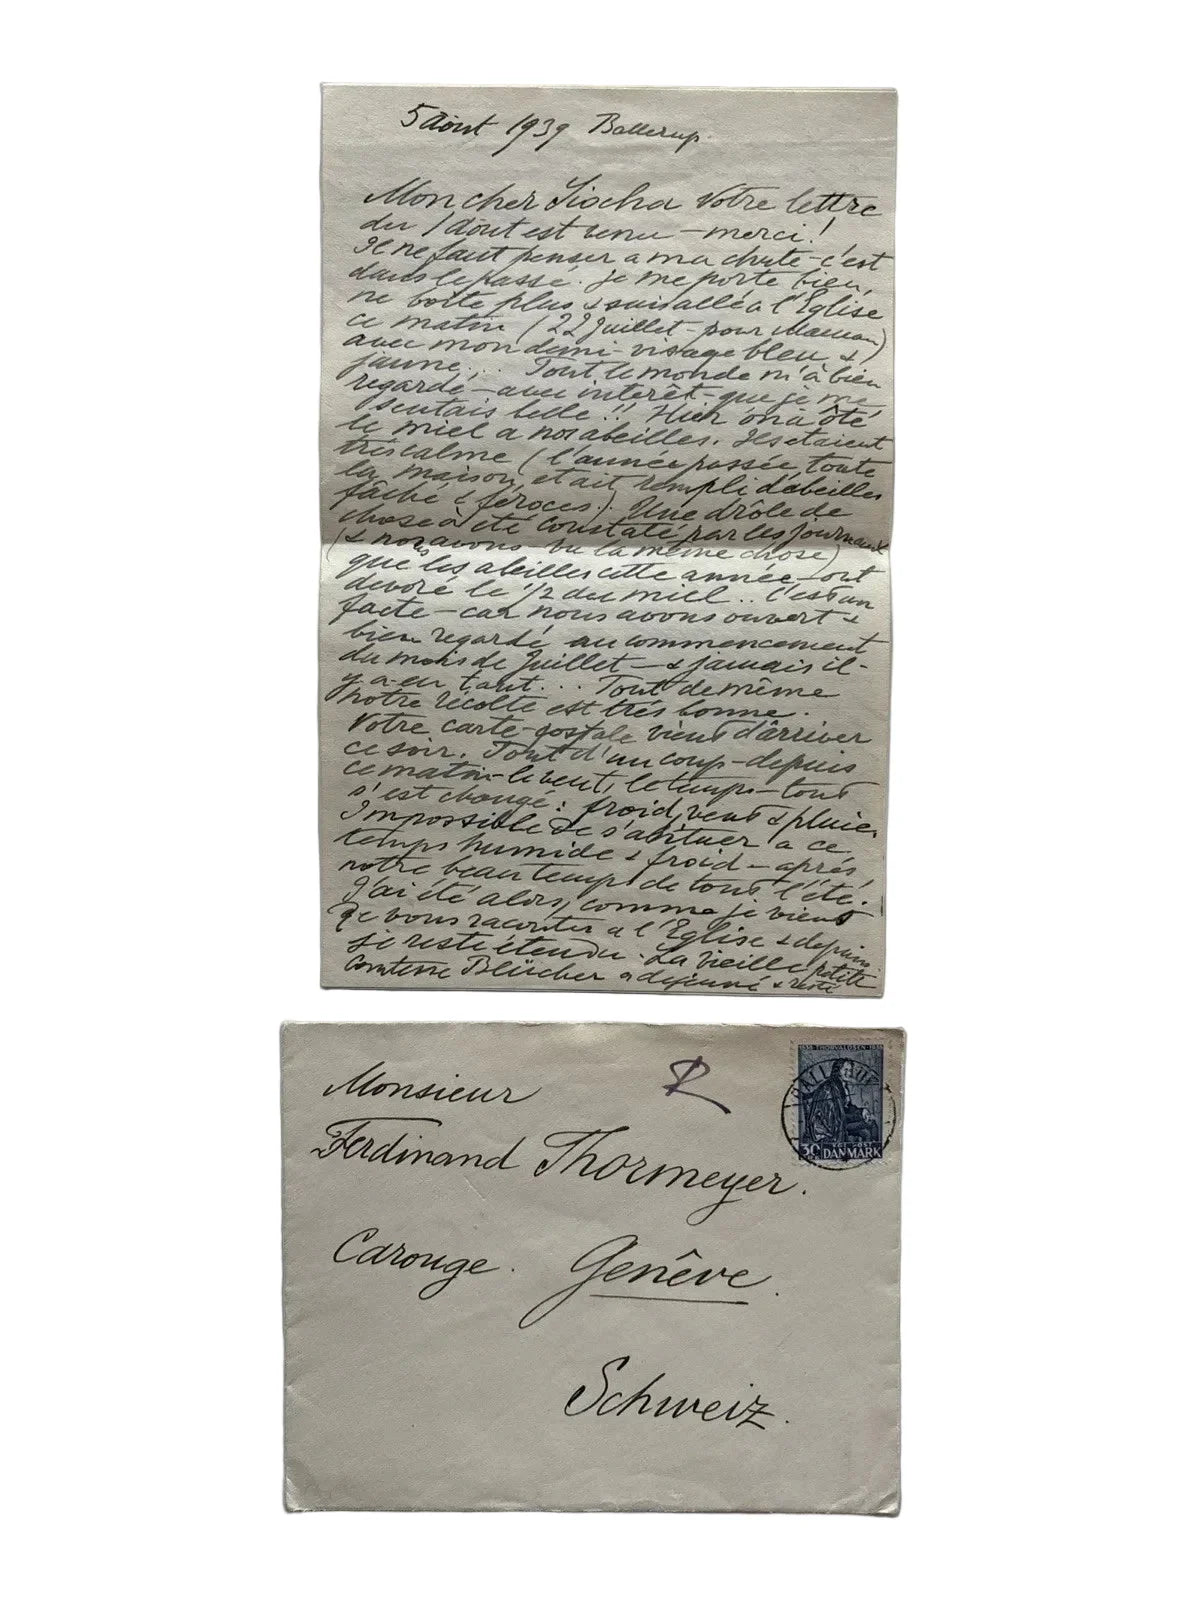 5 Août 1939 Ballerup.
Mon cher Siocha Votre lettre
du 1 Août est venu – merci!
Il ne faut penser a ma chute – c'est
dans le passé. je me porte bien,
ne boite plus & suis allé a l'Eglise
ce matin (22 Juillet – pour Maman)
avec mon demi-visage bleu &
jaune... Tout le monde m'à bien
regardé – avec interêt – que je me
sentais belle!! Hier on a ôté
le miel a nos abeilles. Ils etaient
très calme (l'année passée, toute
la maison était rempli d'abeilles
fâché & féroces.) Une drôle de
chose à été constaté par les journaux
(& nous avons vu la même chose)
que les abeilles cette année – ont
devoré le 1/2 du miel.. C'est un
facte – car nous avons ouvert &
bien regardé au commencement
du mois de Juillet – & jamais il-
y-a-en tant... Tout de même
notre récolte est très bonne.
Votre carte-postale vient d'ârriver
ce soir. Tout d'un coup – depuis
ce matin – le vent, le temps – tout
s'est changé: froid, vent & pluie.
Impossible de s'abituer a ce
temps humide & froid – après
notre beau temps de tout l'été.
J'ai été alors, comme je viens
de vous raconter a l'Eglise & depuis
je reste étendu. La vieille petite
comtesse Blücher a dejeuné & resté
Monsieur
R
Ferdinand Thormeyer.
Carouge. Genêve.
Schweiz.
1838 THORVALDSEN 1938
BALLERUP
30 DANMARK